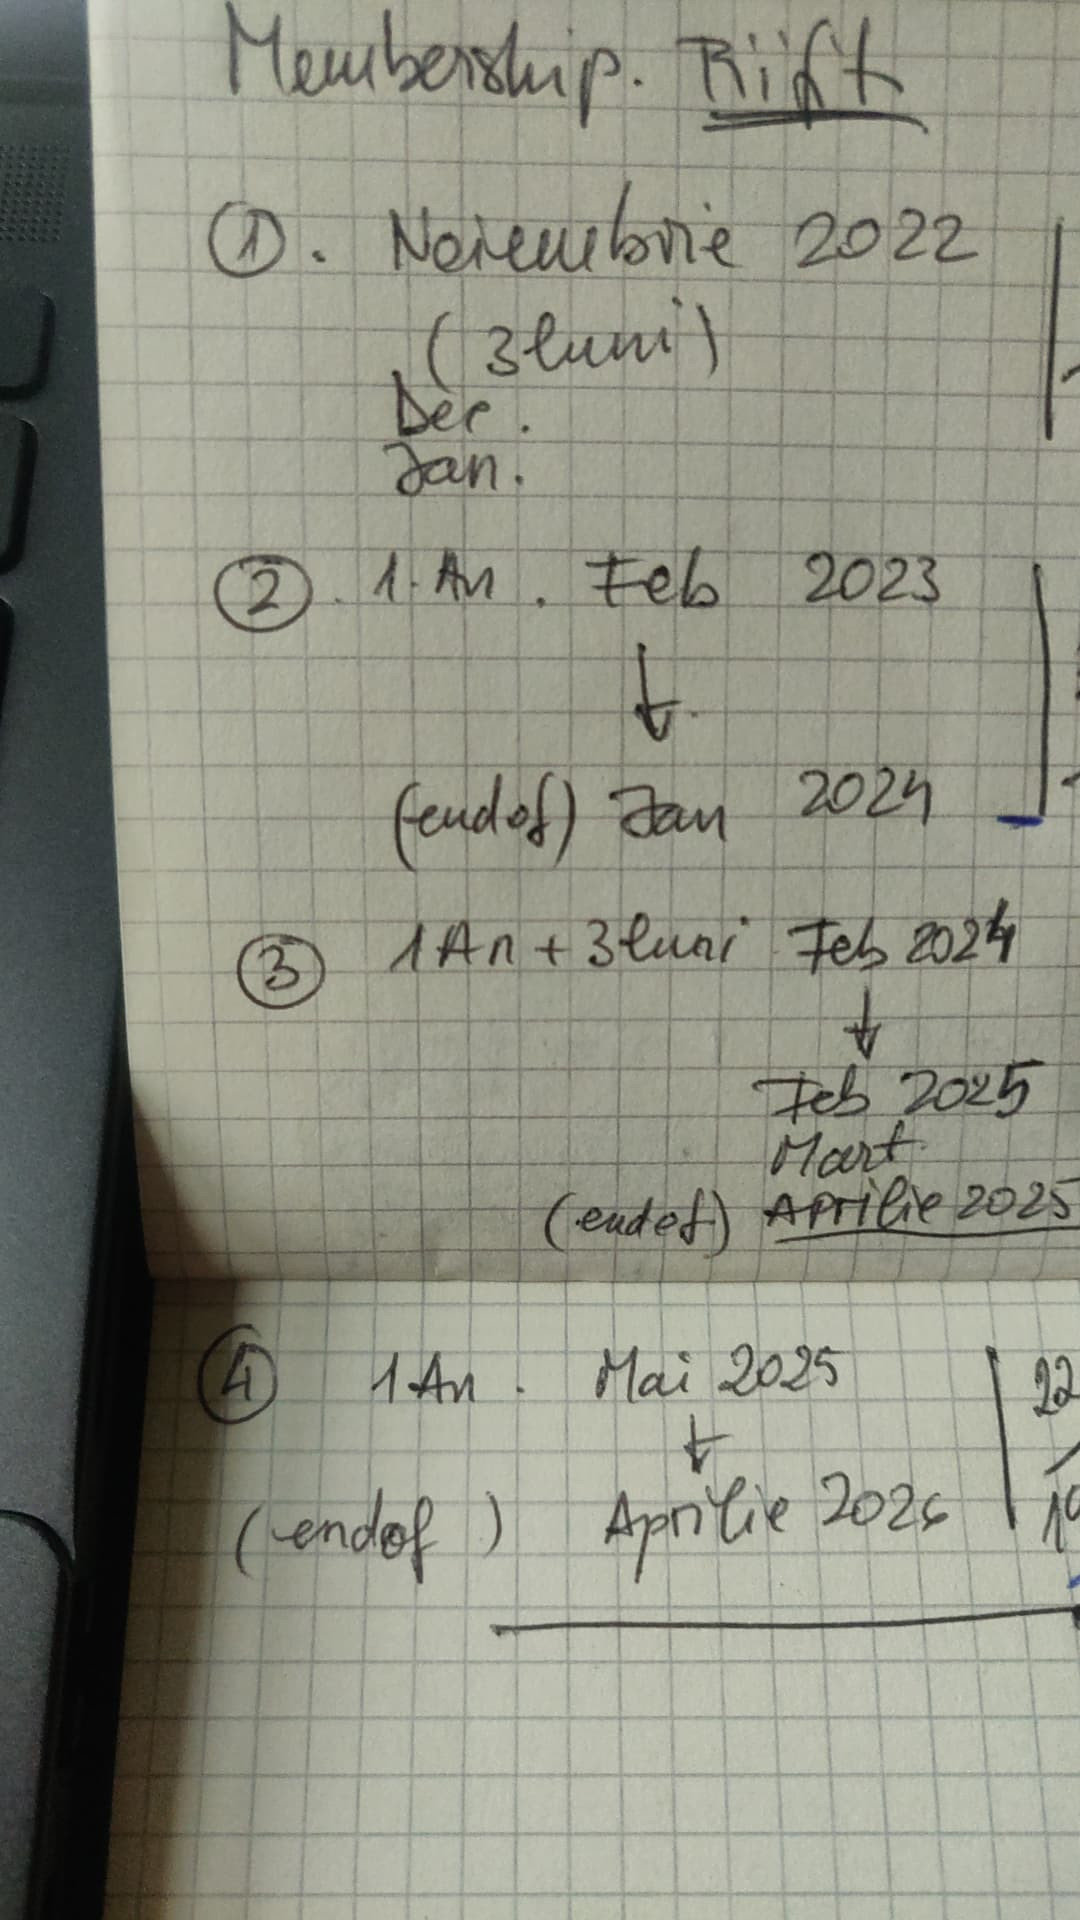 Membership. Riift
① . Noiembrie 2022
(3 luni)
Dec.
Jan.
② . 1. An . Feb 2023
↓
(endof) Jan 2024
③ 1 An + 3 luni Feb 2024
↓
Feb 2025
Mart
(endof) Aprilie 2025
④ 1 An . Mai 2025 22
↓
(endof) Aprilie 2026